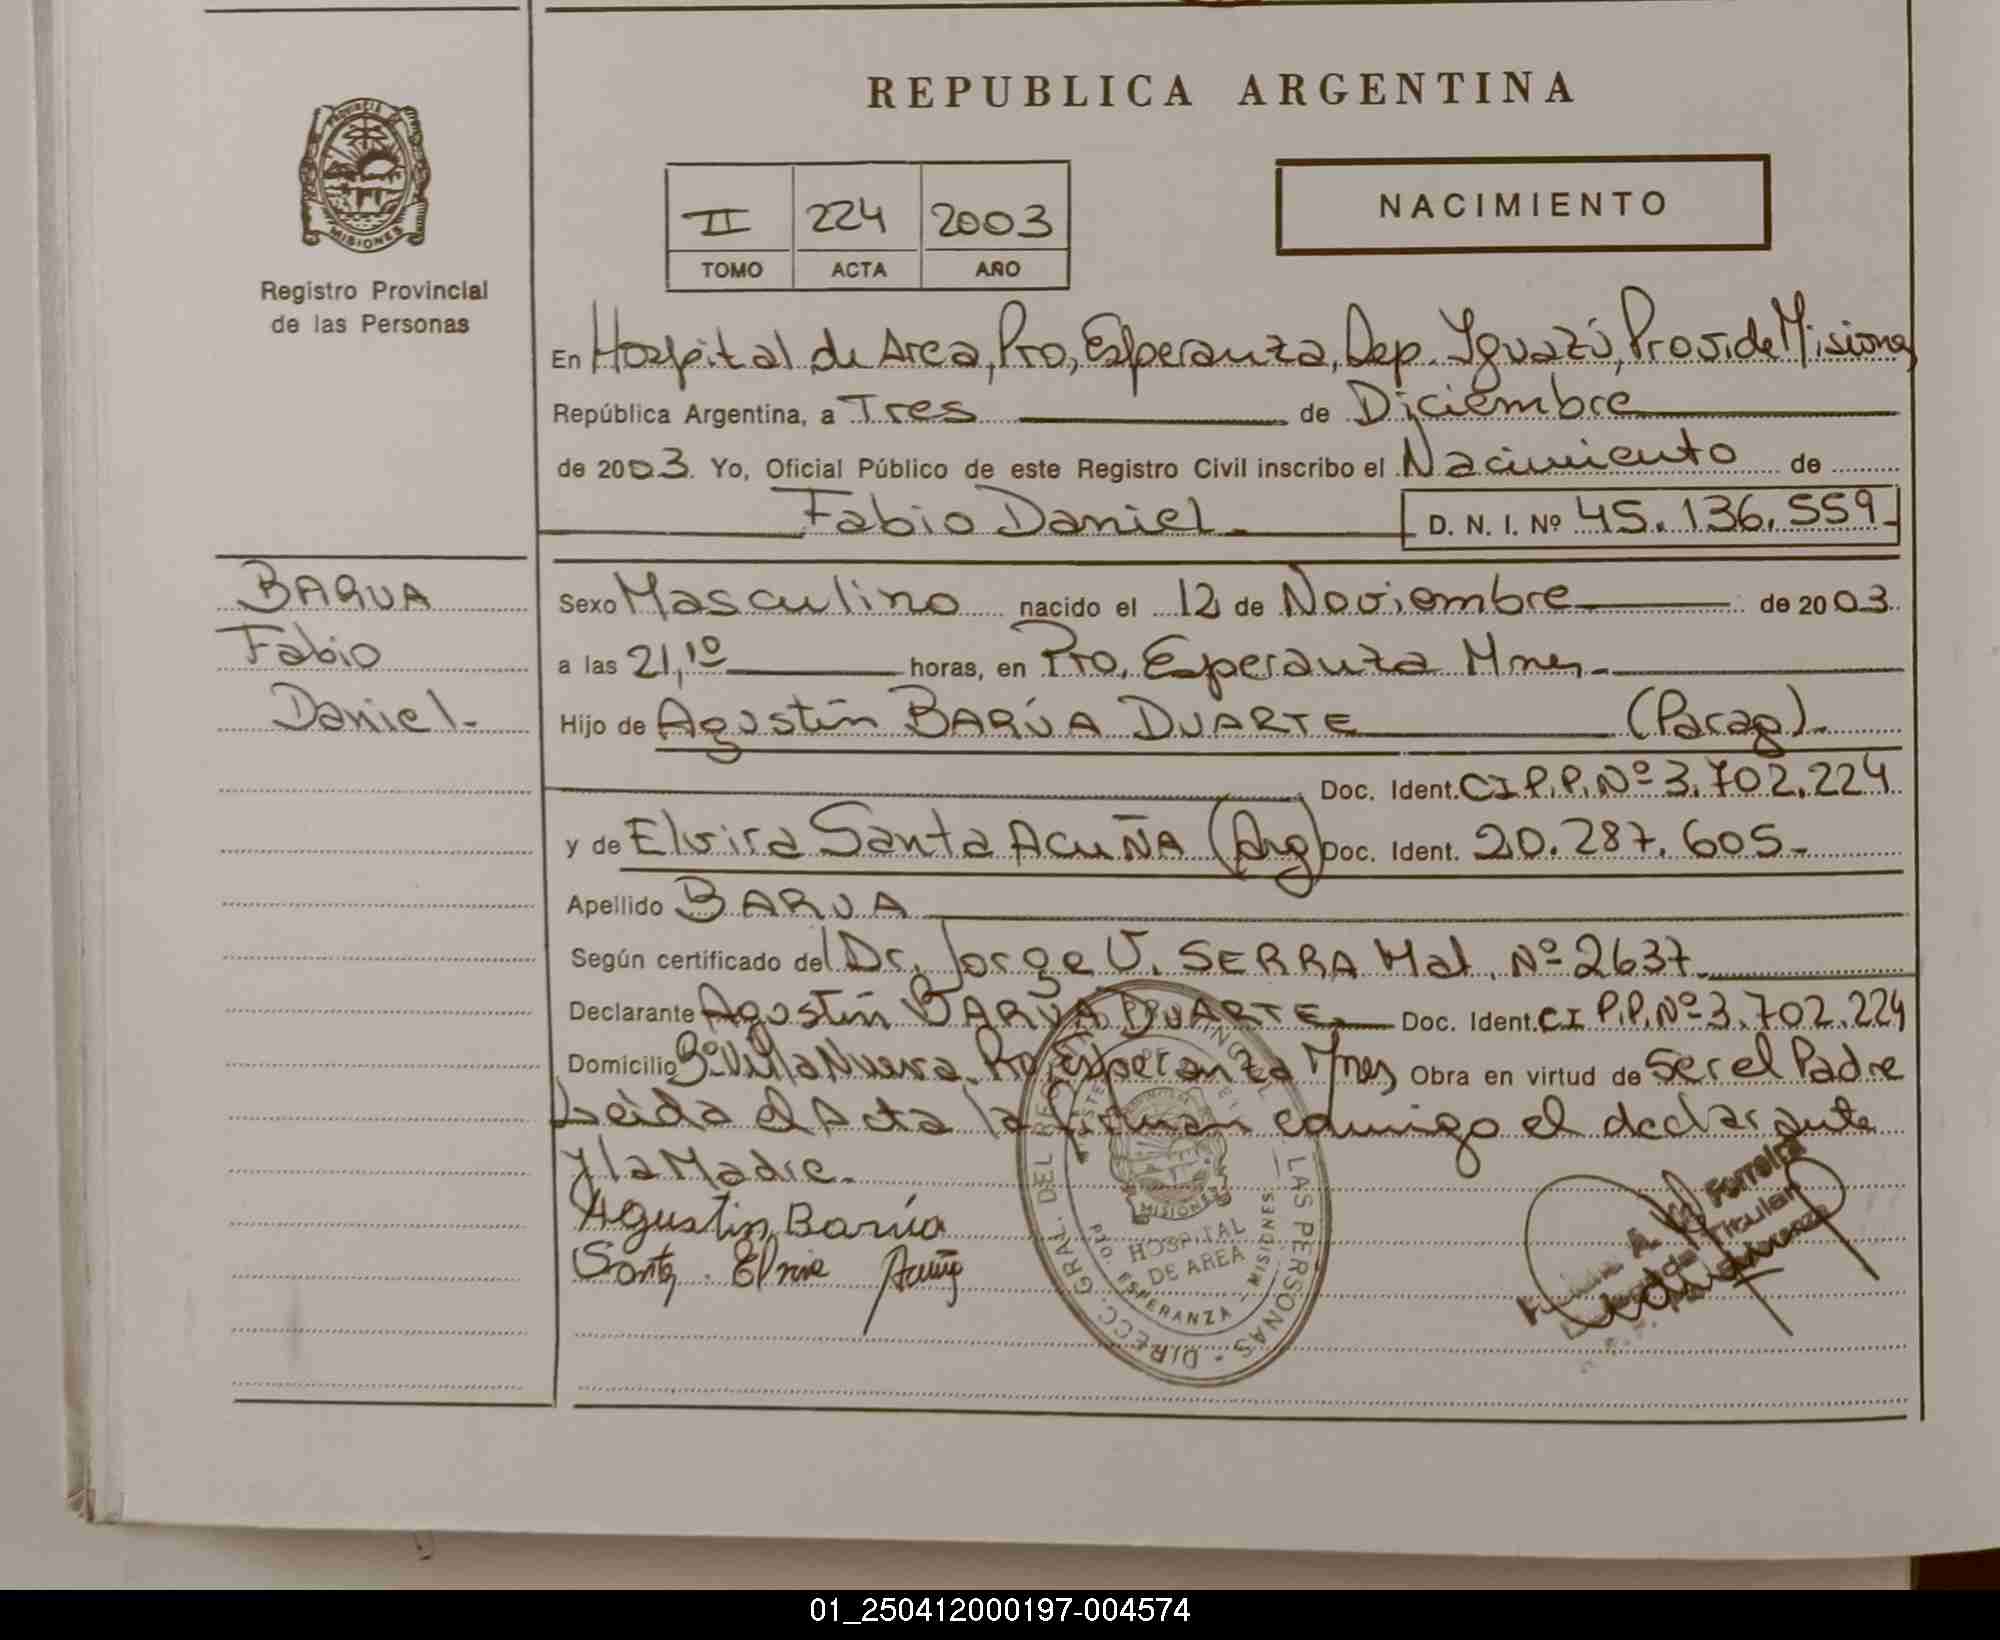 REPUBLICA ARGENTINA
PROVINCIA DE
MISIONES
Registro Provincial
de las Personas
NACIMIENTO
II 224 2003
TOMO ACTA AÑO
En Hospital de Area, Pto, Esperanza, Dep. Iguazú, Prov. de Misiones
República Argentina, a Tres de Diciembre
de 2003. Yo, Oficial Público de este Registro Civil inscribo el Nacimiento de
Fabio Daniel.- D. N. I. Nº 45.136.559-
BARUA
Fabio
Daniel.-
Sexo Masculino nacido el 12 de Noviembre de 2003
a las 21,10 horas, en Pto. Esperanza Mnes.-
Hijo de Agustín BARÚA DUARTE (Parag).-
Doc. Ident. CI P.P. Nº 3.702.224
y de Elvira Santa ACUÑA (Arg) Doc. Ident. 20.287.605.-
Apellido BARUA
Según certificado del Dr. Jorge V. SERRA Mat. Nº 2637
Declarante Agustín BARÚA DUARTE Doc. Ident. CI P.P. Nº 3.702.224
Domicilio Bº Villa Nueva. Pto Esperanza Mnes Obra en virtud de Ser el Padre
Leida el Acta la firman conmigo el declarante
y la Madre.
Agustin Barúa
Santa Elvira Acuña
DIRECC. GRAL. DEL LAS PERSONAS
MISIONES
HOSPITAL
DE AREA
PTO. ESPERANZA - MISIONES
A. Ferreira
Titular
01_250412000197-004574